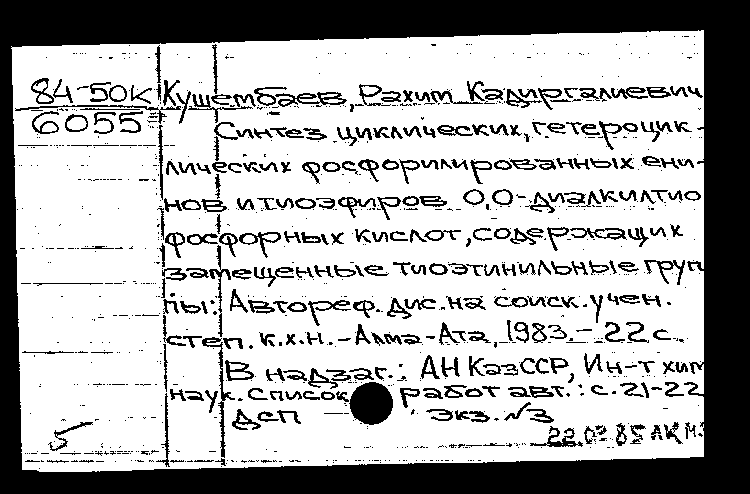 84-50к Кушембаев, Рахим Кадиргалиевич
6055 Синтез циклических, гетероцик-
лических фосфорилированных ени-
нов и тиоэфиров O,O-диалкилтио
фосфорных кислот, содержащих
замещенные тиоэтинильные груп
пы: Автореф. дис. на соиск. учен.
степ. к.х.н. - Алма-Ата, 1983. - 22 с.
В надзаг.: АН КазССР, Ин-т хим
наук. Список работ авт.: с. 21-22
ДСП Экз. №3
5 22.03 85 АК